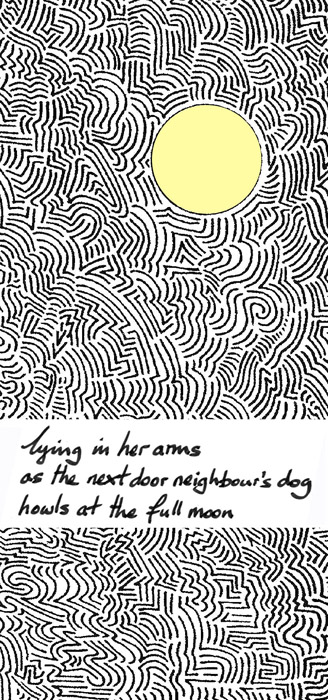 lying in her arms
as the next door neighbour's dog
howls at the full moon